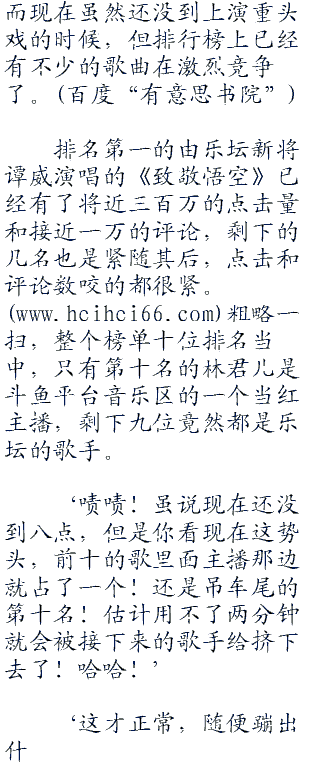 而现在虽然还没到上演重头
戏的时候，但排行榜上已经
有不少的歌曲在激烈竞争
了。(百度“有意思书院”)
排名第一的由乐坛新将
谭威演唱的《致敬悟空》已
经有了将近三百万的点击量
和接近一万的评论，剩下的
几名也是紧随其后，点击和
评论数咬的都很紧。
(www.hcihci66.com)粗略一
扫，整个榜单十位排名当
中，只有第十名的林君儿是
斗鱼平台音乐区的一个当红
主播，剩下九位竟然都是乐
坛的歌手。
‘啧啧！虽说现在还没
到八点，但是你看现在这势
头，前十的歌里面主播那边
就占了一个！还是吊车尾的
第十名！估计用不了两分钟
就会被接下来的歌手给挤下
去了！哈哈！’
‘这才正常，随便蹦出
什